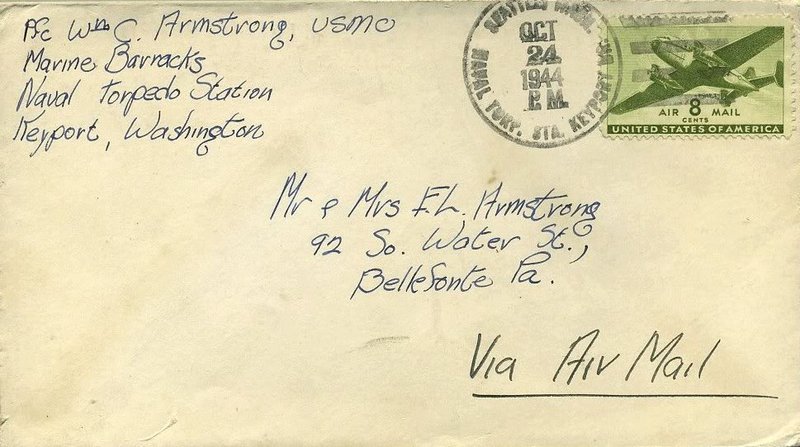 Pfc Wm C. Armstrong, USMC
Marine Barracks
Naval Torpedo Station
Keyport, Washington
SEATTLE WASH.
OCT
24
1944
P.M.
NAVAL TORP. STA. KEYPORT
AIR 8 MAIL
CENTS
UNITED STATES OF AMERICA
Mr & Mrs F.L. Armstrong
92 So. Water St.,
Bellefonte Pa.
Via Air Mail